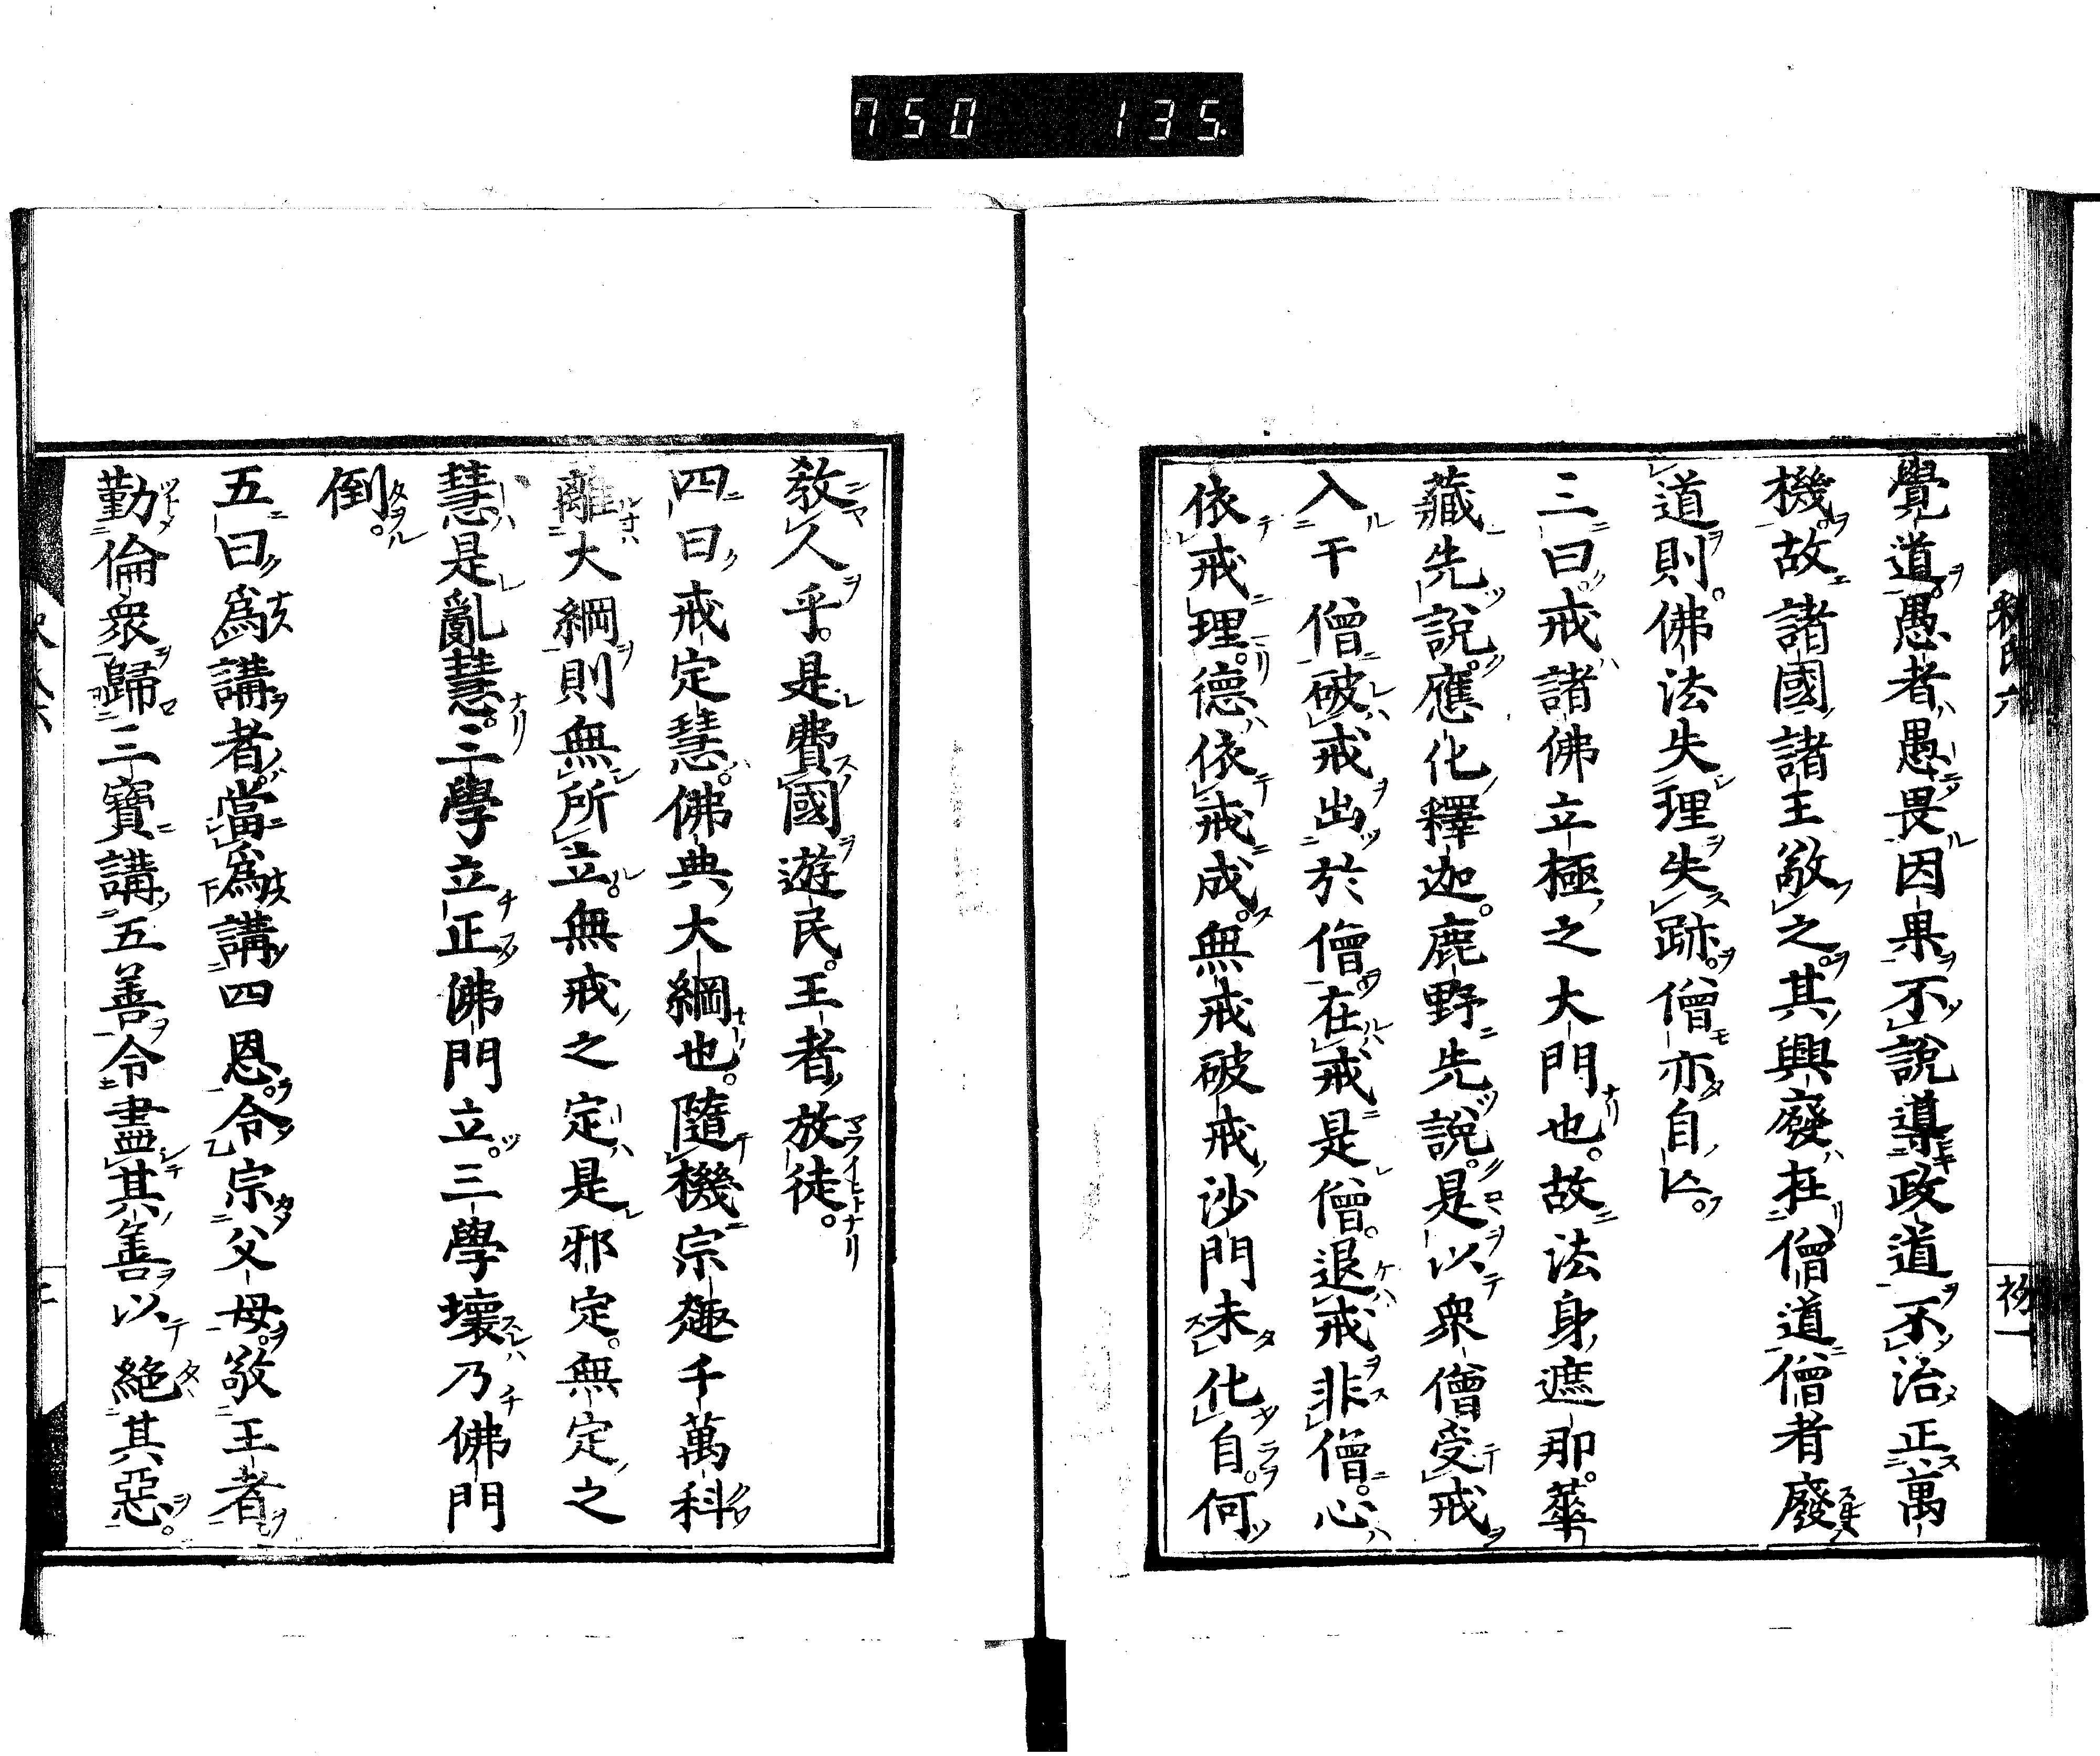 750 135.
覺道愚者愚畏因果不說導政道不治正萬
機故諸國諸王敬之其興廢在僧道僧者廢
道則佛法失理失跡僧亦自亾
三曰戒諸佛立極之大門也故法身遮那華
藏先說應化釋迦鹿野先說是以衆僧受戒
入干僧破戒出於僧在戒是僧退戒非僧心
依戒理德依戒成無戒破戒沙門未化自何
教人乎是費國遊民王者放徒
四曰戒定慧佛典大綱也隨機宗趣千萬科
離大綱則無所立無戒之定是邪定無定之
慧是亂慧三學立正佛門立三學壞乃佛門
倒
五曰爲講者當爲講四恩令宗父母敬王者
勤倫衆歸三寶講五善令盡其善以絕其惡